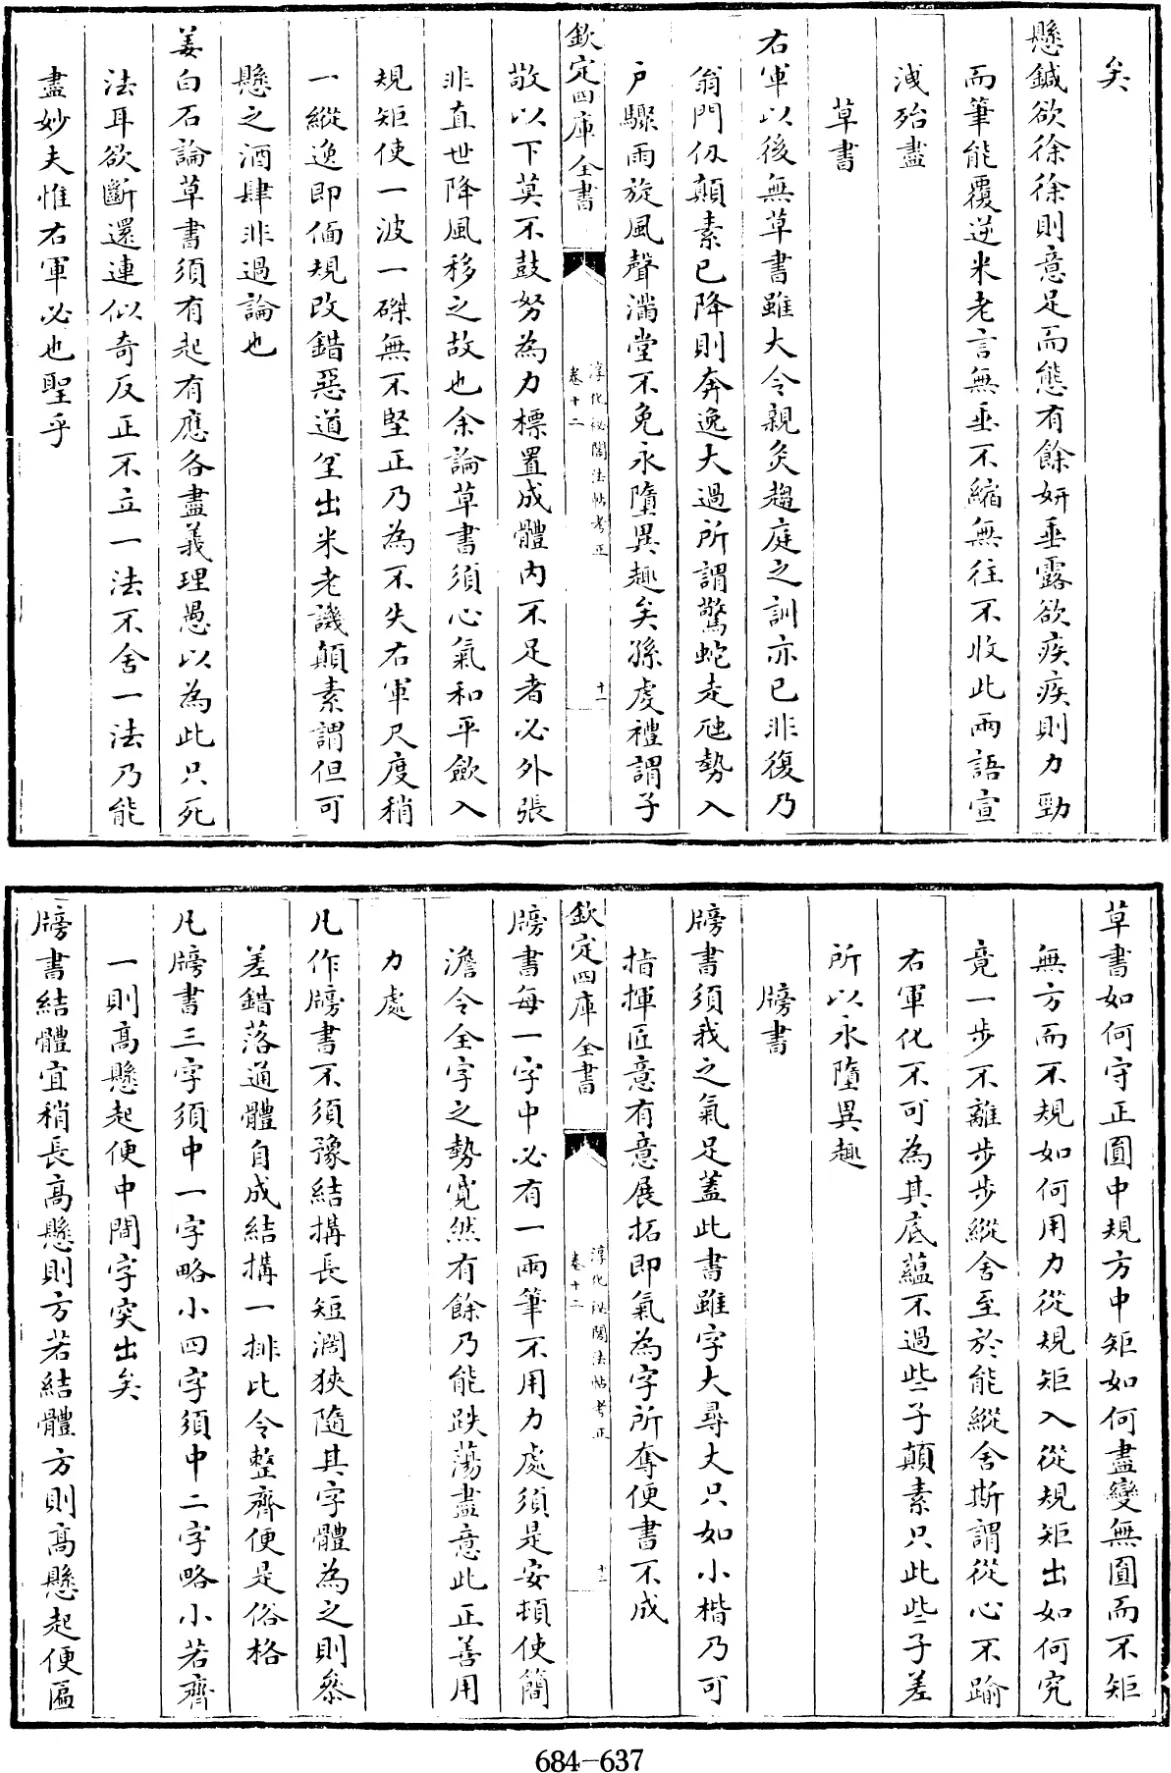 矣
懸鍼欲徐徐則意足而態有餘妍垂露欲疾疾則力勁
而筆能覆逆米老言無垂不縮無往不收此兩語宣
洩殆盡
草書
右軍以後無草書雖大令親炙趨庭之訓亦已非復乃
翁門仭顛素已降則奔逸大過所謂驚蛇走虺勢入
戶驟雨旋風聲滿堂不免永墮異趣矣孫虔禮謂子
欽定四庫全書
淳化祕閣法帖考正
卷十二
十一
敬以下莫不鼓努為力標置成體內不足者必外張
非直世降風移之故也余論草書須心氣和平斂入
規矩使一波一磔無不堅正乃為不失右軍尺度稍
一縱逸即偭規改錯惡道坌出米老譏顛素謂但可
懸之酒肆非過論也
姜白石論草書須有起有應各盡義理愚以為此只死
法耳欲斷還連似奇反正不立一法不舍一法乃能
盡妙夫惟右軍必也聖乎
草書如何守正圓中規方中矩如何盡變無圓而不矩
無方而不規如何用力從規矩入從規矩出如何究
竟一步不離步步縱舍至於能縱舍斯謂從心不踰
右軍化不可為其底蘊不過些子顛素只此些子差
所以永墮異趣
牓書
牓書須我之氣足蓋此書雖字大尋丈只如小楷乃可
指揮匠意有意展拓即氣為字所奪便書不成
欽定四庫全書
淳化祕閣法帖考正
卷十二
十二
牓書每一字中必有一兩筆不用力處須是安頓使簡
澹令全字之勢寬然有餘乃能跌蕩盡意此正善用
力處
凡作牓書不須豫結搆長短濶狹隨其字體為之則參
差錯落通體自成結搆一排比令整齊便是俗格
凡牓書三字須中一字略小四字須中二字略小若齊
一則高懸起便中間字突出矣
牓書結體宜稍長高懸則方若結體方則高懸起便匾
684-637